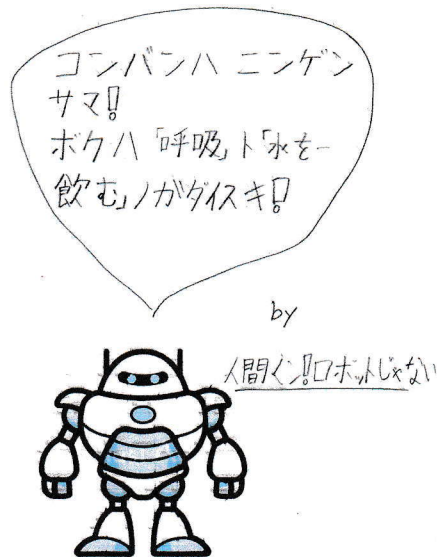 コンバンハ ニンゲン
サマ!!
ボクハ「呼吸」ト「水を
飲む」ノガダイスキ!!
by
人間くン!!ロボットじゃない